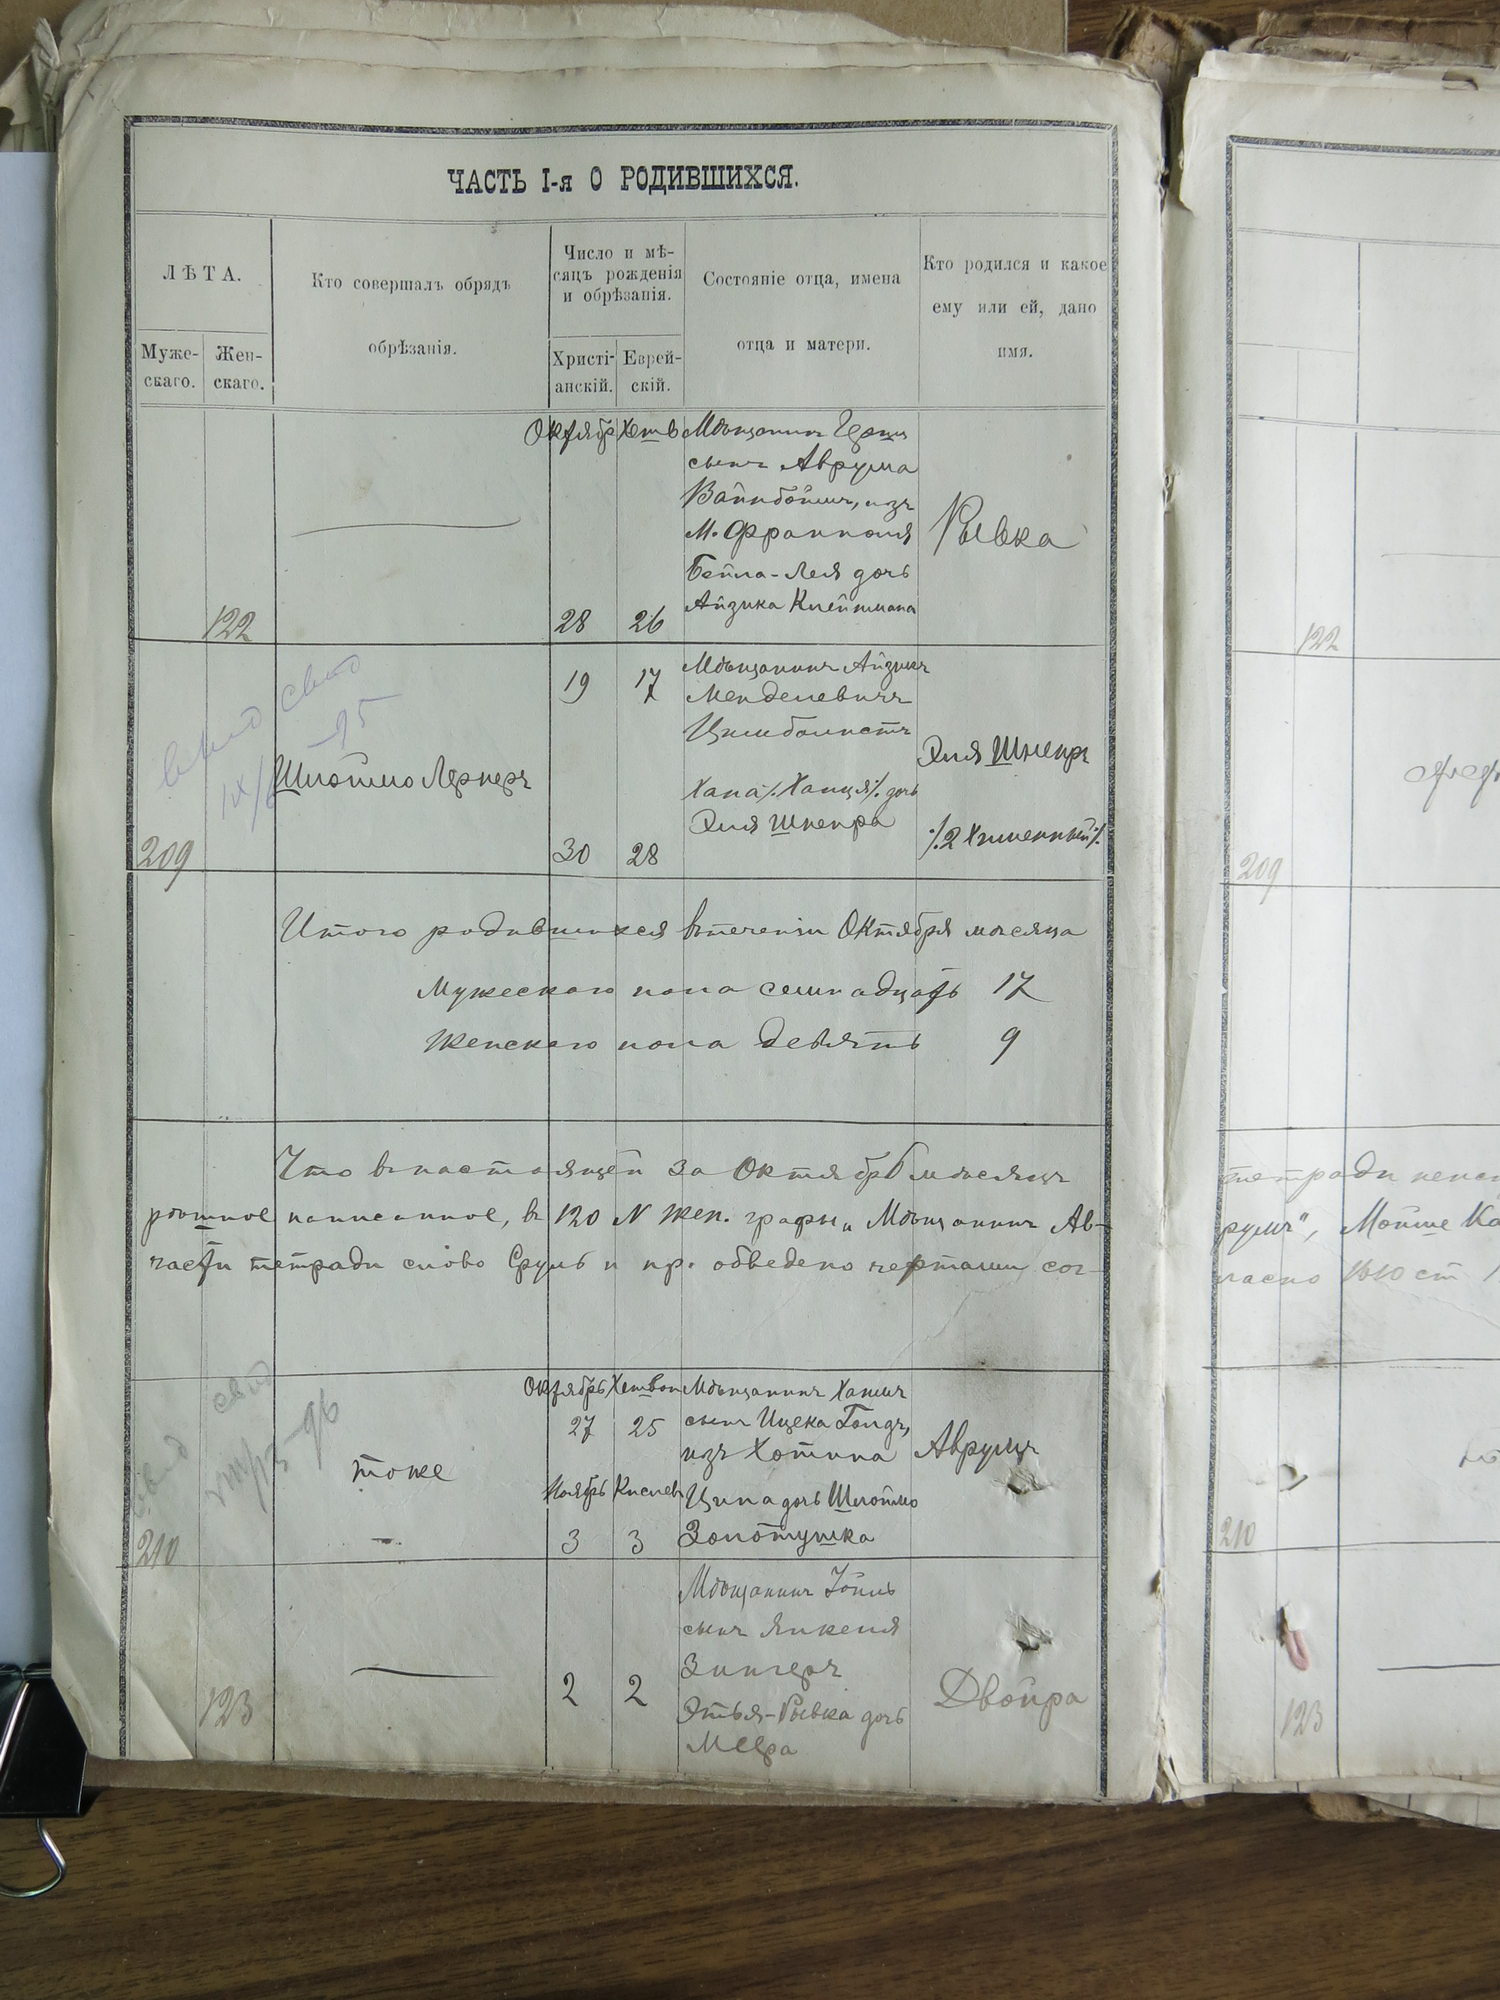 ЧАСТЬ I-я О РОДИВШИХСЯ.
ЛѢТА.
Муже-
скаго.
Жен-
скаго.
Кто совершалъ обрядъ
обрѣзанія.
Число и мѣ-
сяцъ рожденія
и обрѣзанія.
Христі-
анскій.
Еврей-
скій.
Состояніе отца, имена
отца и матери.
Кто родился и какое
ему или ей, дано
имя.
122
Октябрь
28
Хешв
26
Мѣщанинъ Герш
сынъ Аврума
Вайнбоймъ, изъ
м. Франполя
Бейла-Лея дочь
Айзика Клейтмана
Рывка
209
Шлоймо Лернеръ
19
17
30
28
Мѣщанинъ Айзикъ
Менделевичъ
Цимбалистъ
Хана /. Ханця /. дочь
Эля Шнепра
Эля Шнепръ
/. 2 Хименный /.
Итого родившихся втеченіи Октября мѣсяца
Мужескаго пола семнадцать 17
Женскаго пола девять 9
Что внастоящей за Октябрь мѣсяцъ
рѣшное написанное, въ 120 N жен. графы „Мѣщанинъ Ав-
части тетради слово Сруль и пр. обведено чертами сог-
210
тоже
Октябрь
27
Ноябрь
3
Хешван
25
Кислев
3
Мѣщанинъ Хаимъ
сынъ Ицека Гольдъ,
изъ Хотина
Ципа дочь Шлоймо
Золотушка
Аврумъ
123
2
2
Мѣщанинъ Іойль
сынъ Янкеля
Зингеръ
Этья-Рывка дочь
Меера
Двойра
122
209
тетради
румъ", Мойше Ка
ласно 1610 ст
210
123